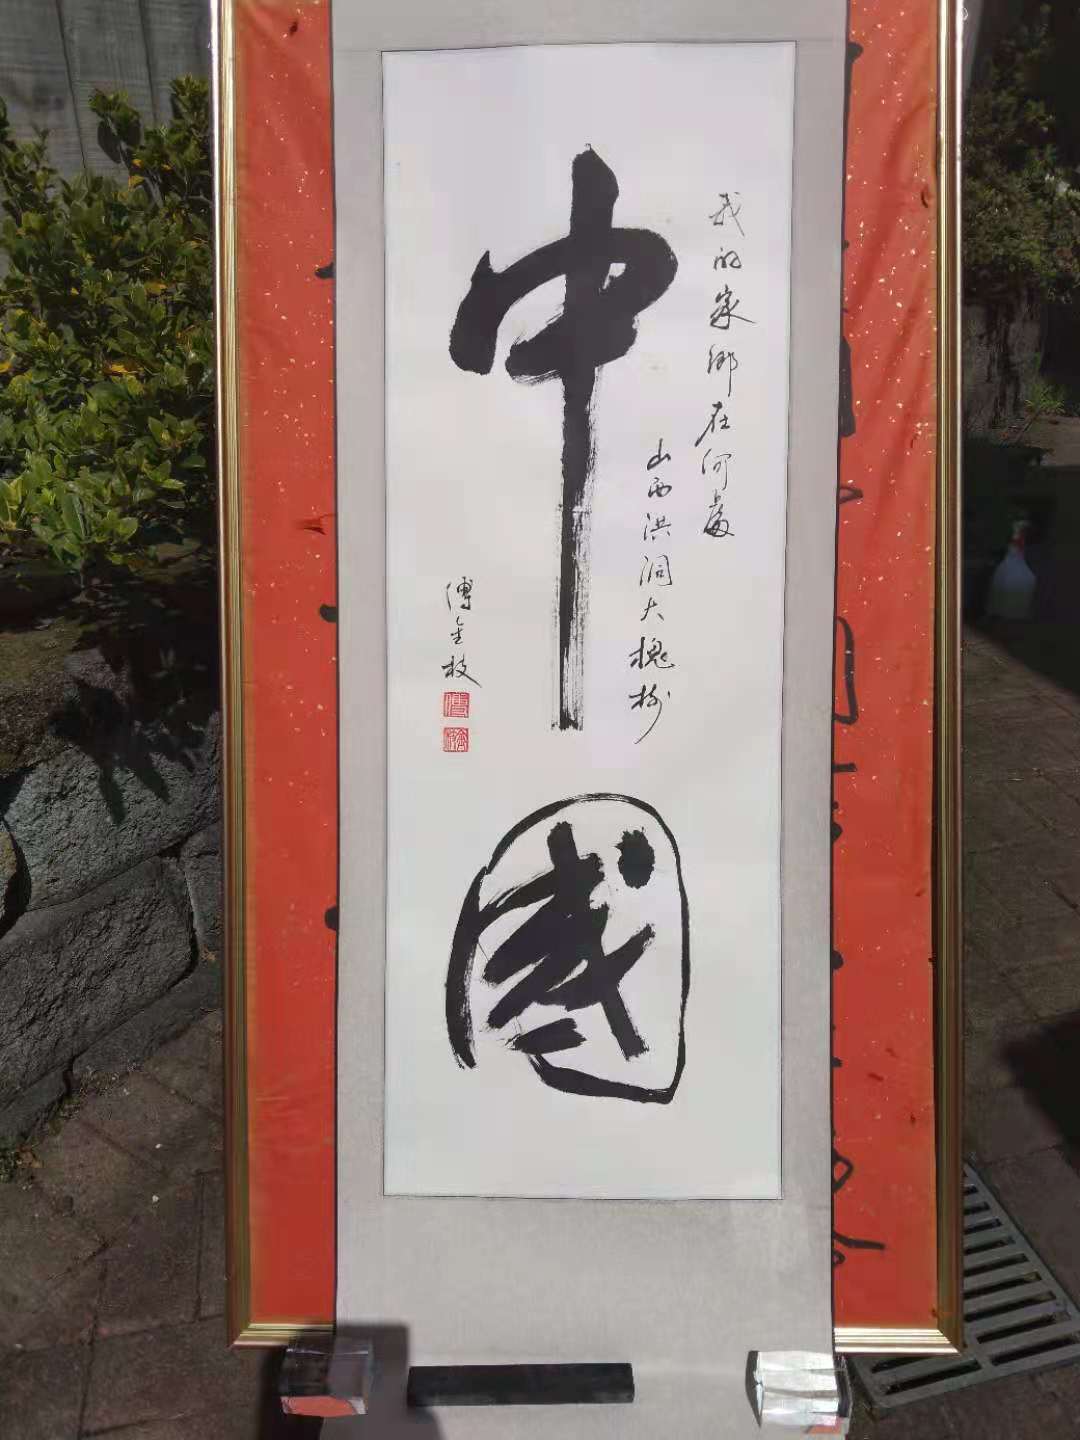 中國
我的家鄉在何處
山西洪洞大槐树
傅金枝